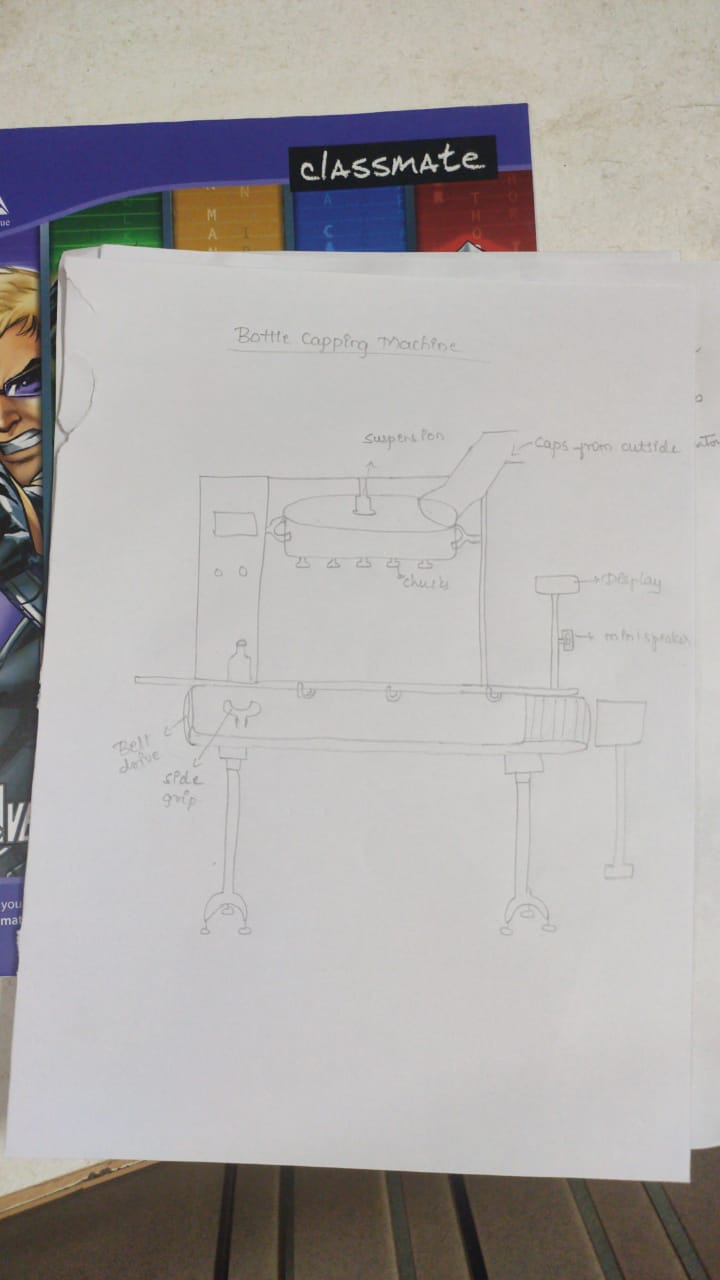 classmate
Bottle Capping Machine
Suspension
Caps from outside
chucks
Display
minispeaker
Belt
drive
side
grip
you